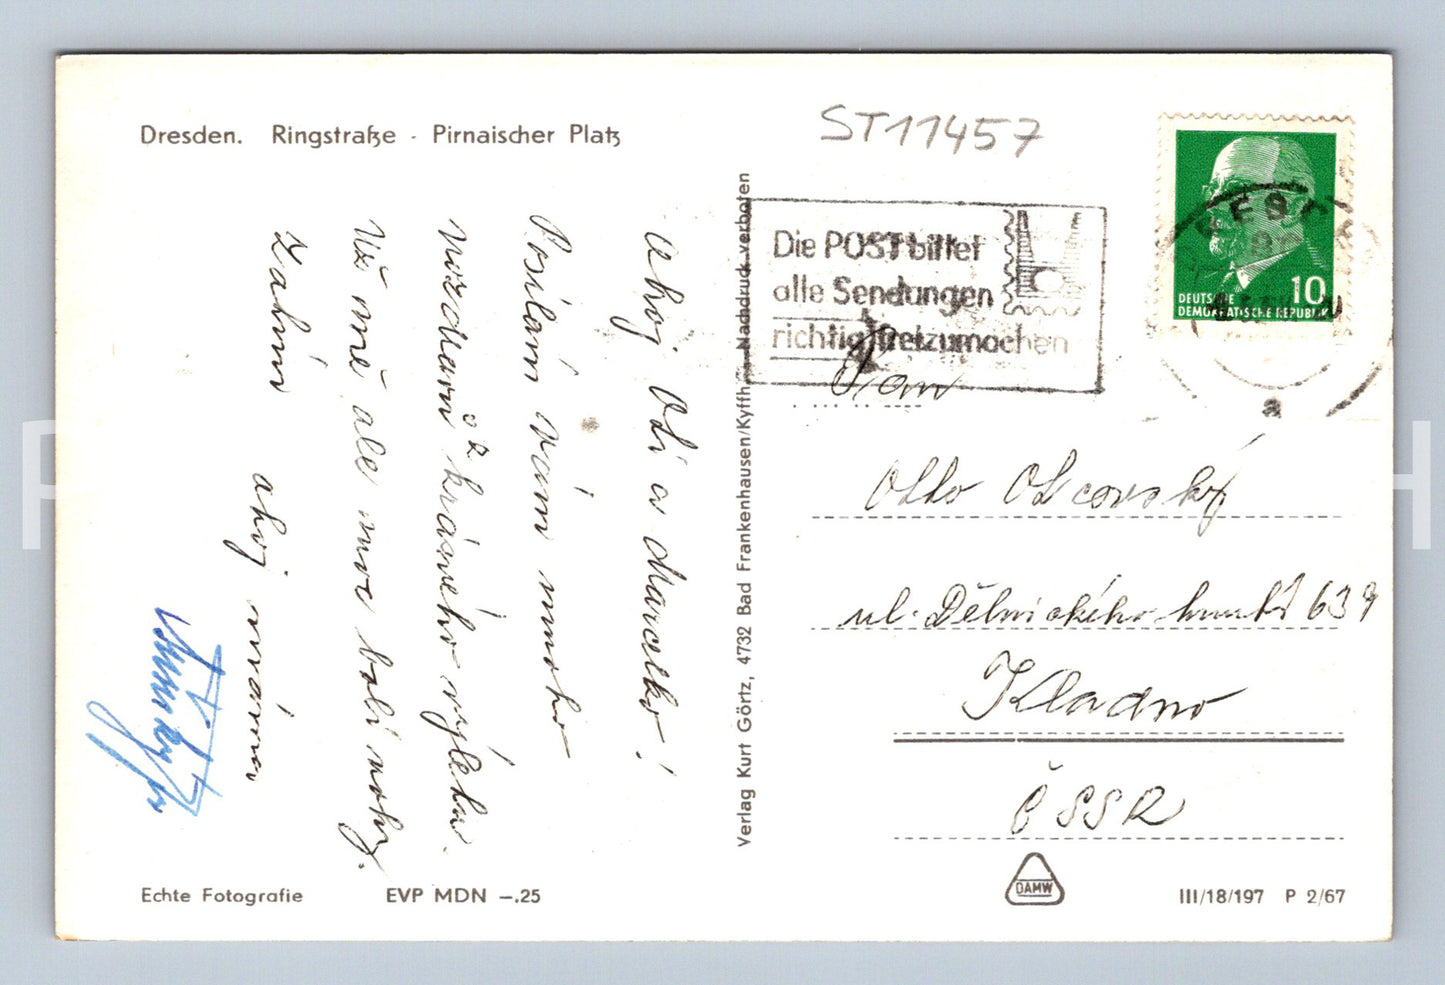 Dresden. Ringstraße - Pirnaischer Platz
ST11457
Die POST bittet
alle Sendungen
richtig freizumachen
10
DEUTSCHE
DEMOKRATISCHE REPUBLIK
a
Ahoj Oti a Marcelko!
Posílám vám mnoho
pozdravů z krásného výletu.
Už mě ale moc bolí nohy.
Zatím
ahoj máma
Pan
Otto Otcovský
ul. Dělnického hnutí 639
Kladno
ČSSR
Verlag Kurt Görtz, 4732 Bad Frankenhausen/Kyffh. - Nachdruck verboten
Echte Fotografie EVP MDN –.25
DAMW
III/18/197 P 2/67